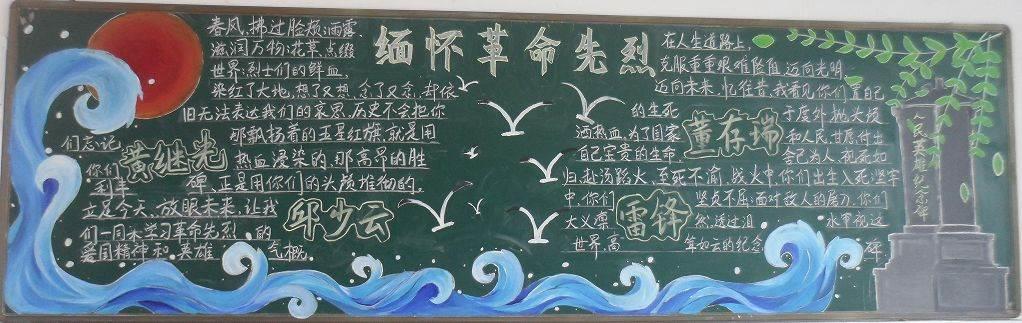 缅怀革命先烈
春风,拂过脸颊;雨露,
滋润万物;花草,点缀
世界;烈士们的鲜血,
染红了大地,想了又想,念了又念,却依
旧无法表达我们的哀思,历史不会把你
们忘记 那飘扬着的五星红旗,就是用
你们 黄继光 热血浸染的,那高昂的胜
利丰 碑,正是用你们的头颅堆彻的,
立足今天、放眼未来,让我 邱少云
们一同来学习革命先烈 的
爱国精神和 英雄 气概
在人生道路上,
克服重重艰难险阻,迈向光明,
迈向未来,忆往昔,我看见你们置自己
的生死 董存瑞 于度外,抛头颅
洒热血,为了国家 和人民,甘愿付出
自己宝贵的生命, 舍己为人,视死如
归,赴汤蹈火,至死不渝,战火中,你们出生入死,坚牢
中,你们 雷锋 坚贞不屈;面对敌人的屠刀,你们
大义禀 然,透过泪 水审视这
世界,高 耸如云的纪念 碑
人民英雄纪念碑